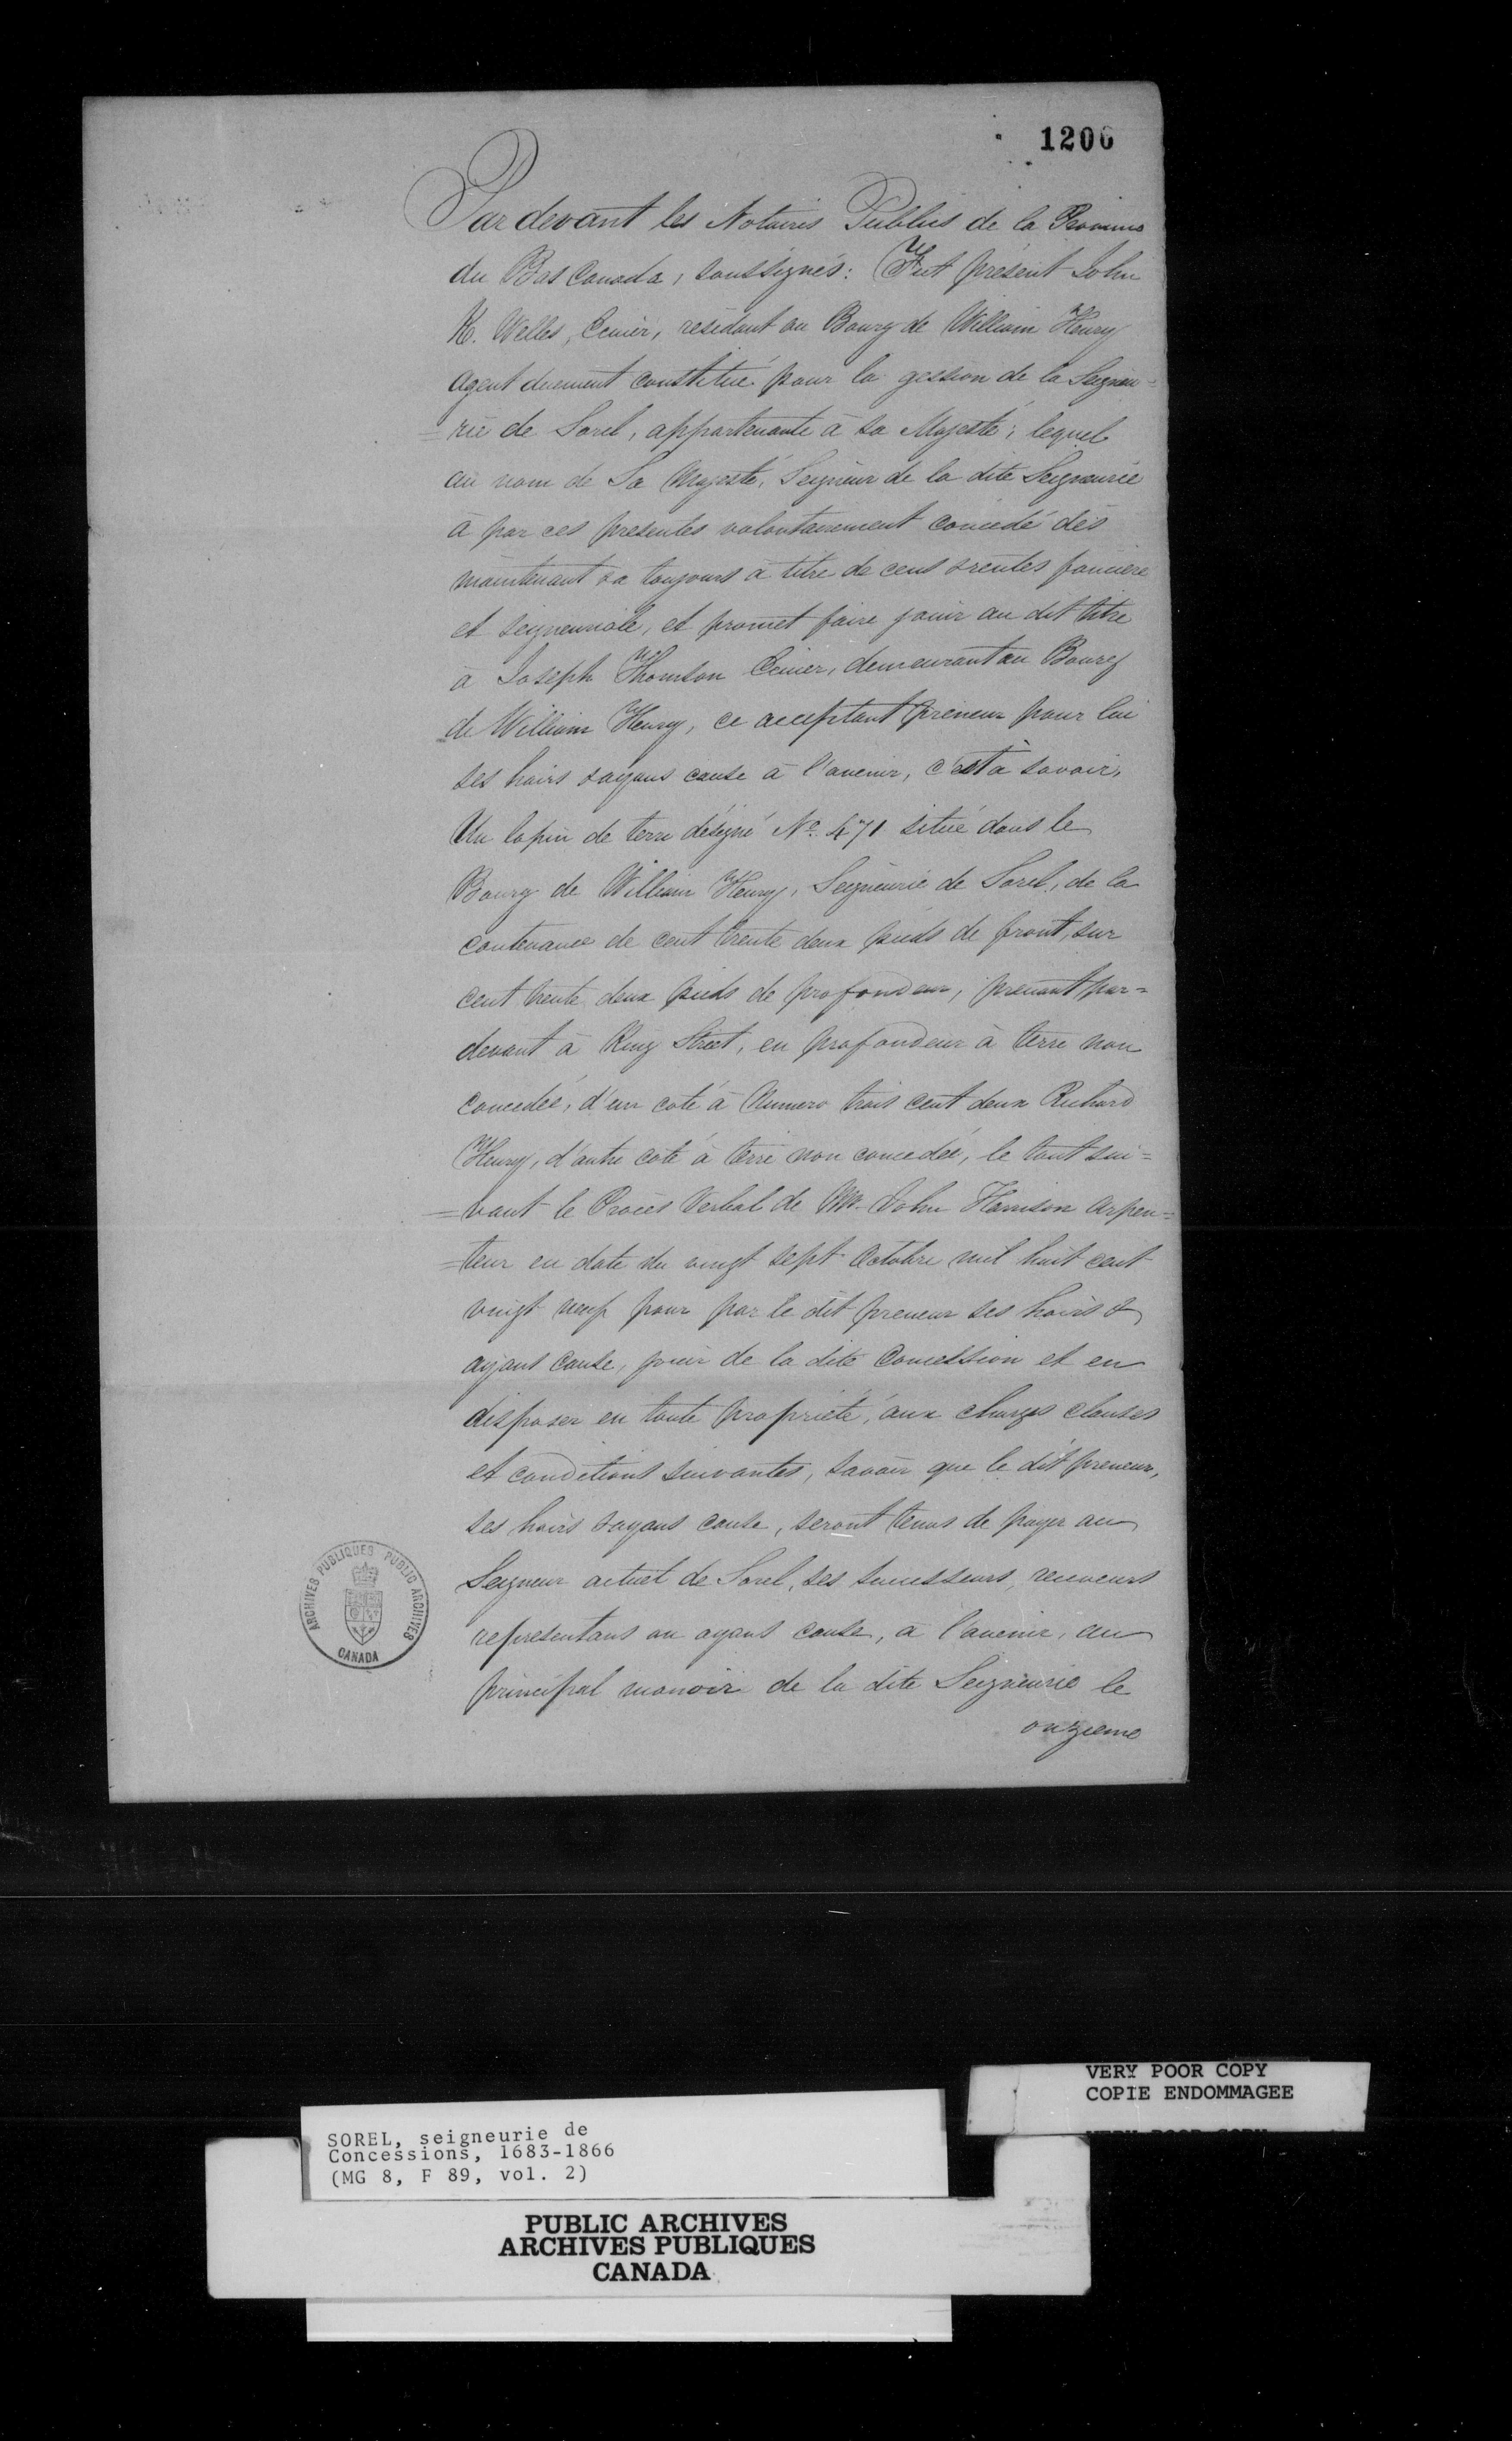 1206
Pardevant les Notaires Publics de la Province
du Bas Canada, soussignés: Fut présent John
K. Welles, Ecuier, résidant au Bourg de William Henry
Agent duement constitué pour la gession de la Seigneu=
=rie de Sorel, appartenante à Sa Majesté; lequel
au nom de Sa Majesté, Seigneur de la dite Seigneurie
à par ces presentes volontairement concedé dès
maintenant & a toujours à titre de cens & rentes fonciere
et seigneuriale, et promet faire jouir au dit titre
à Joseph Thomson Ecuier, demeurant au Bourg
de William Henry, ce acceptant preneur pour lui
ses hoirs & ayans cause à l'avenir, c'est à savoir,
Un lopin de terre désigné No. 471 situé dans le
Bourg de William Henry, Seigneurie de Sorel, de la
contenance de cent trente deux pieds de front, sur
cent trente deux pieds de profondeur, prenant par=
devant à King Street, en profondeur à terre non
concedée, d'un coté à Numero trois cent deux Richard
Henry, d'autre coté à terre non concedée, le tout sui=
=vant le Procès Verbal de Mr. John Harrison Arpen=
=teur en date du vingt sept Octobre mil huit cent
vingt neuf pour par le dit preneur ses hoirs &
ayans cause, jouir de la dite Concession et en
disposer en toute propriété, aux charges clauses
et conditions suivantes, savoir que le dit preneur,
ses hoirs & ayans cause, seront tenus de payer au
Seigneur actuel de Sorel, ses successeurs, receveurs
representans ou ayans cause, a l'avenir, au
principal manoir de la dite Seigneurie le
onzieme
ARCHIVES PUBLIQUES PUBLIC ARCHIVES
CANADA
VERY POOR COPY
COPIE ENDOMMAGEE
VERY POOR COPY
SOREL, seigneurie de
Concessions, 1683-1866
(MG 8, F 89, vol. 2)
PUBLIC ARCHIVES
ARCHIVES PUBLIQUES
CANADA